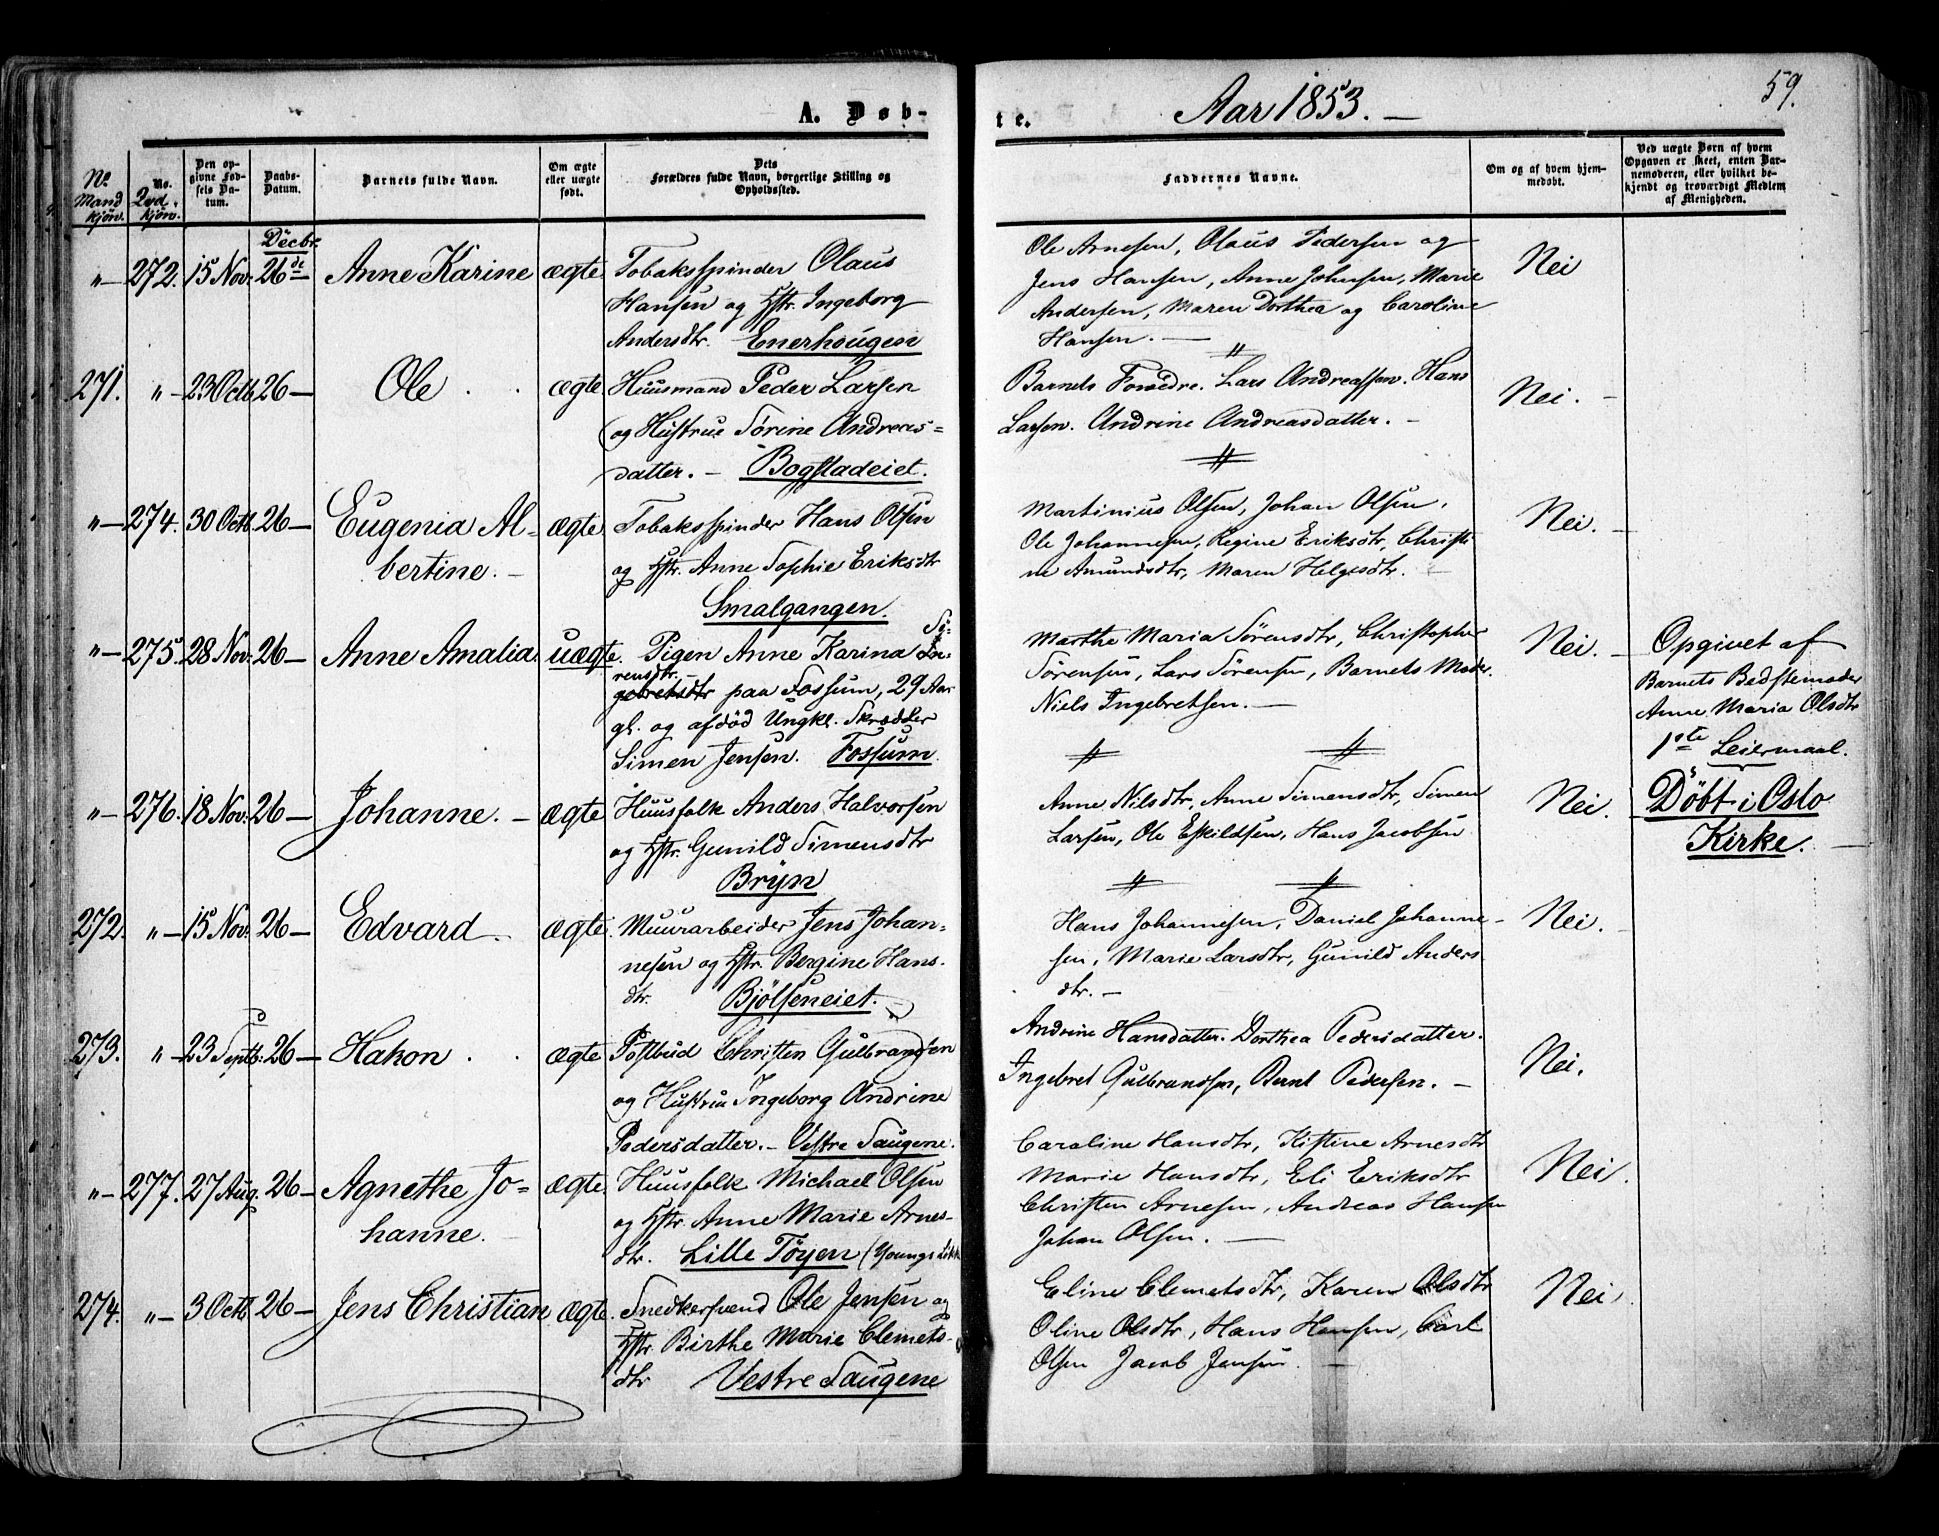 A. Døb-
te.
Aar 1853. —
59.
No. Mandkjøn.
No. Qvd.kjøn.
Den opgivne Fødsels Datum.
Daabs-Datum.
Barnets fulde Navn.
Om ægte eller uægte født.
Dets Forældres fulde Navn, borgerlige Stilling og Opholdssted.
Faddernes Navne.
Om og af hvem hjemmedøbt.
Ved uægte Børn af hvem Opgaven er skeet, enten Barnemoderen, eller hvilket bekjendt og troværdigt Medlem af Menigheden.
Decbr.
"— 272. 15 Nov. 26de Anne Karine ægte. Tobaksspinder Olaus
Hansen og Hstr. Ingeborg
Andersdtr. Enerhougen
Ole Arnesen, Olaus Pedersen og
Jens Hansen, Anne Johnsen, Marie
Andersen, Maren Dorthea og Caroline
Hansen. —
Nei
271. "— 23 Octb. 26— Ole . . ægte. Huusmand Peder Larsen
og Hustrue Sørine Andreas=
datter. — Bogstadeiet.
Barnets Forældre. Lars Andreassen. Hans
Larsen. Andrine Andreasdatter. —
Nei. —
"— 274. 30 Octb. 26— Eugenia Al-
bertine. —
ægte. Tobaksspinder Hans Olsen
og Hstr. Anne Sophie Eriksdtr
Smalgangen.
Martinius Olsen, Johan Olsen,
Ole Johannesen, Regine Eriksdtr, Christi
ne Amundsdtr, Maren Helgesdtr. —
Nei. —
"— 275. 28 Nov. 26— Anne Amalia. uægte. Pigen Anne Karina Sø-
In-
rensdtr. —
gebretsdtr paa Fossum, 29 Aar
gl. og afdød Ungkl. Skrædder
Simen Jensen. Fossum.
Marthe Maria Sørensdtr, Christopher
Sørensen, Lars Sørensen, Barnets Moder.
Niels Ingebretsen. —
Nei. —
Opgivet af
Barnets Bedstemoder
Anne Maria Olsdtr
1ste Leiermaal.
"— 276. 18 Nov. 26— Johanne. — ægte Huusfolk Anders Halvorsen
og Hstr. Gunild Simensdtr
Bryn
Anne Nilsdtr, Anne Simensdtr, Simen
Larsen, Ole Eskildsen, Hans Jacobsen
Nei.
Döbt i Oslo
Kirke. —
272. "— 15 Nov. 26— Edvard. ægte. Muurarbeider Jens Johan-
nesen og Hstr. Bergine Hans.
dtr. Bjølseneiet. —
Hans Johannesen, Daniel Johanne-
sen, Marie Larsdtr, Gunild Anders
dtr. —
Nei.
273. "— 23 Septb. 26— Hakon . . ægte Postbud Christen Gulbrandsen
og Hustrue Ingeborg Andrine
Pedersdatter. — Vestre Saugene.
Andrine Hansdatter. Dorthea Pedersdatter.
Ingebret Gulbrandsen, Bernt Pedersen. —
Nei.
"— 277. 27 Aug. 26— Agnethe Jo=
hanne. —
ægte. Huusfolk Michael Olsen
og Hstr. Anne Marie Arnes-
dtr. Lille Tøyen (Youngs Løkke
Caroline Hansdtr, Kistine Arnesdtr
Marie Hansdtr, Eli Eriksdtr
Christen Arnesen, Andreas Hansen
Johan Olsen. —
Nei.
274. "— 3 Octb. 26— Jens Christian ægte. Snedkersvend Ole Jensen og
Hstr. Birthe Marie Clemets-
dtr Vestre Saugene
Eline Clemetsdtr, Karen Olsdtr
Oline Olsdtr, Hans Hansen, Carl
Olsen Jacob Jensen. —
Nei.